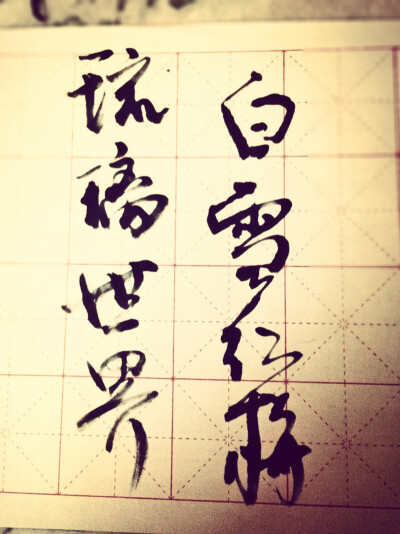 白雪红梅
琉璃世界